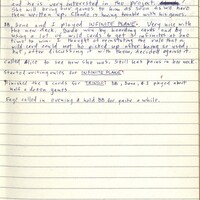 and he is very interested in the project
I will bring her games to him as soon as we have
them written up. Claude is having trouble with his games.
BB, Dave and I played INFINITE PLANE. Very nice with
the new deck. Dave won by hoarding cards and by
using a lot of wild cards to get 30 infinites at one
time to win. I thought of reinstating the rule that a
wild card could not be picked up after being so used,
but, after discussing it with them, decided against it.
Called Alise to see how she was. Still has pains in her neck.
Started writing rules for INFINITE PLANE.
Finished the 5 cards for BB, Dave, & I played about
half a dozen games.
Kay called in evening & told BB for quite a while.